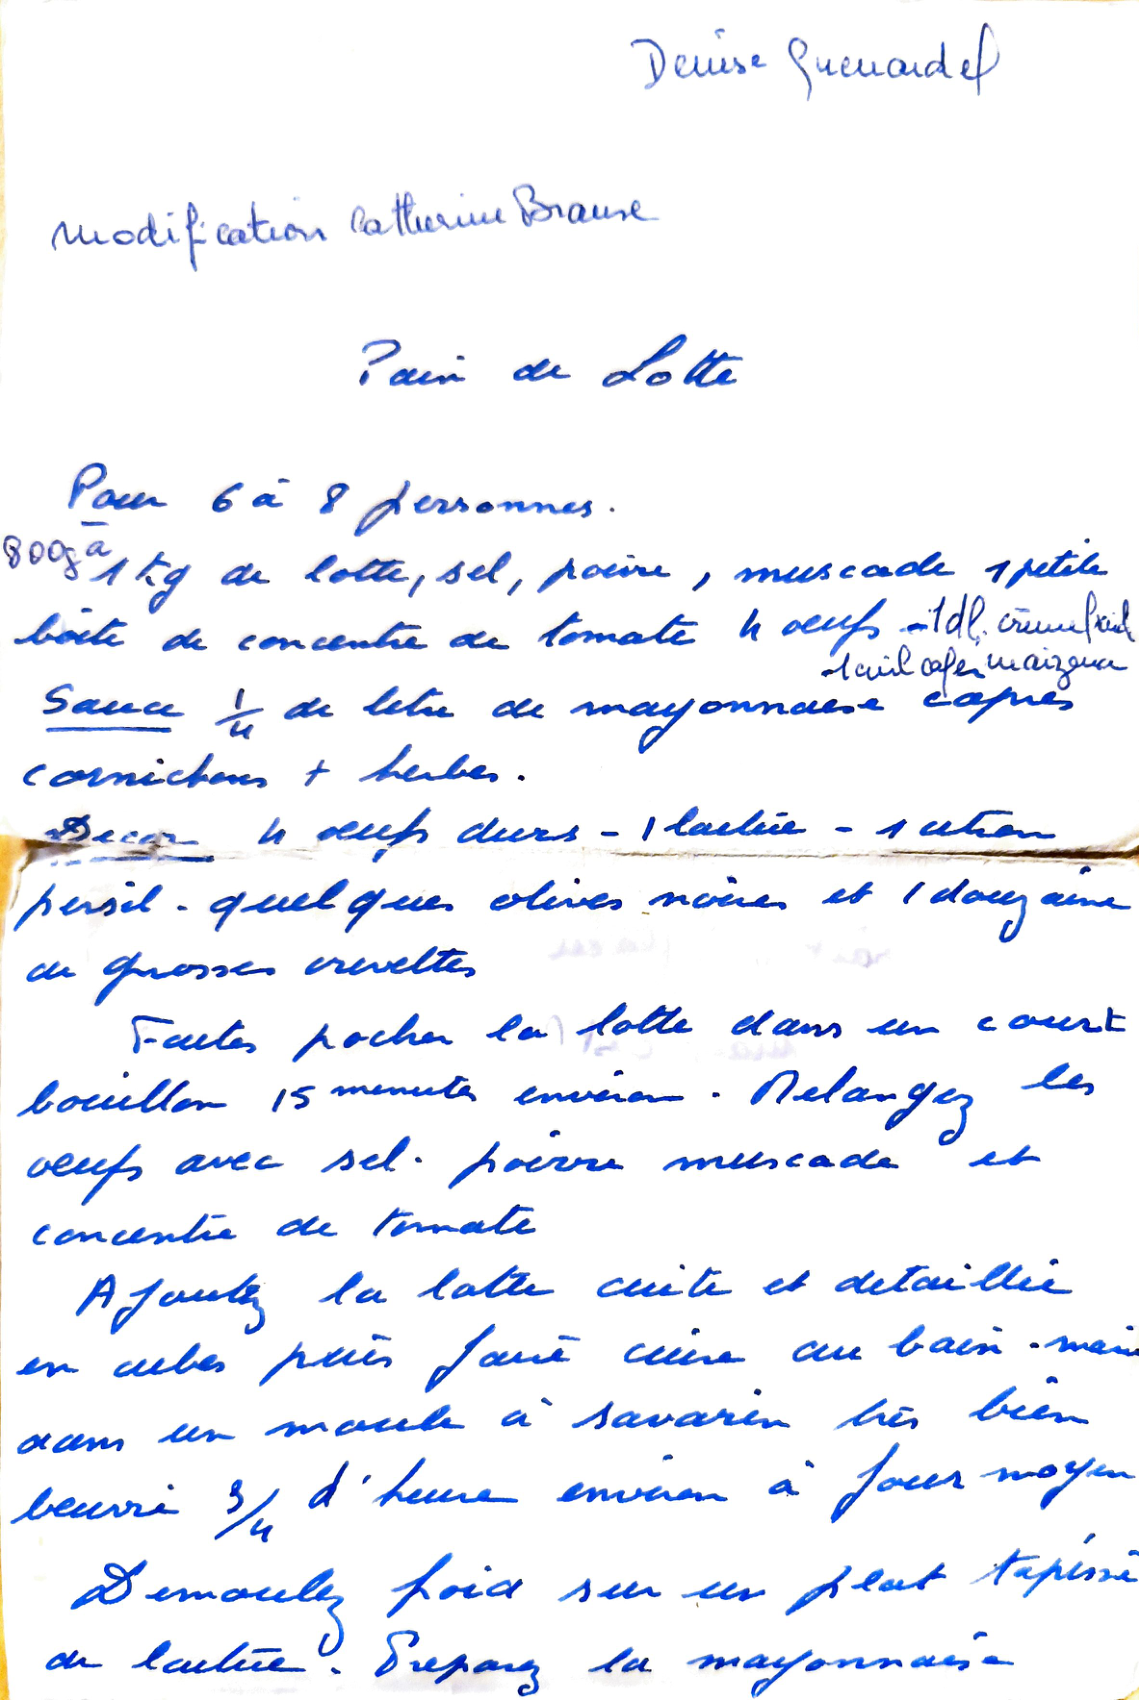 Denise Guenardel
Modification Catherine Brause
Pain de Lotte
Pour 6 à 8 personnes.
800g à
1 kg de lotte, sel, poivre, muscade 1 petite
boîte de concentré de tomate 4 oeufs - 1 dl. crème froid
- 1 cuil café maizena
Sauce 1/4 de litre de mayonnaise capres
cornichons + herbes.
Decor 4 oeufs durs - 1 laitue - 1 citron
persil - quelques olives noires et 1 douzaine
de grosses crevettes
Faites pocher la lotte dans un court
bouillon 15 minutes environ. Melangez les
oeufs avec sel. poivre muscade et
concentré de tomate
Ajoutez la lotte cuite et detaillée
en cubes puis faire cuire au bain-marie
dans un moule à savarin très bien
beurré 3/4 d'heure environ à four moyen
Demoulez froid sur un plat tapissé
de laitue. Preparez la mayonnaise